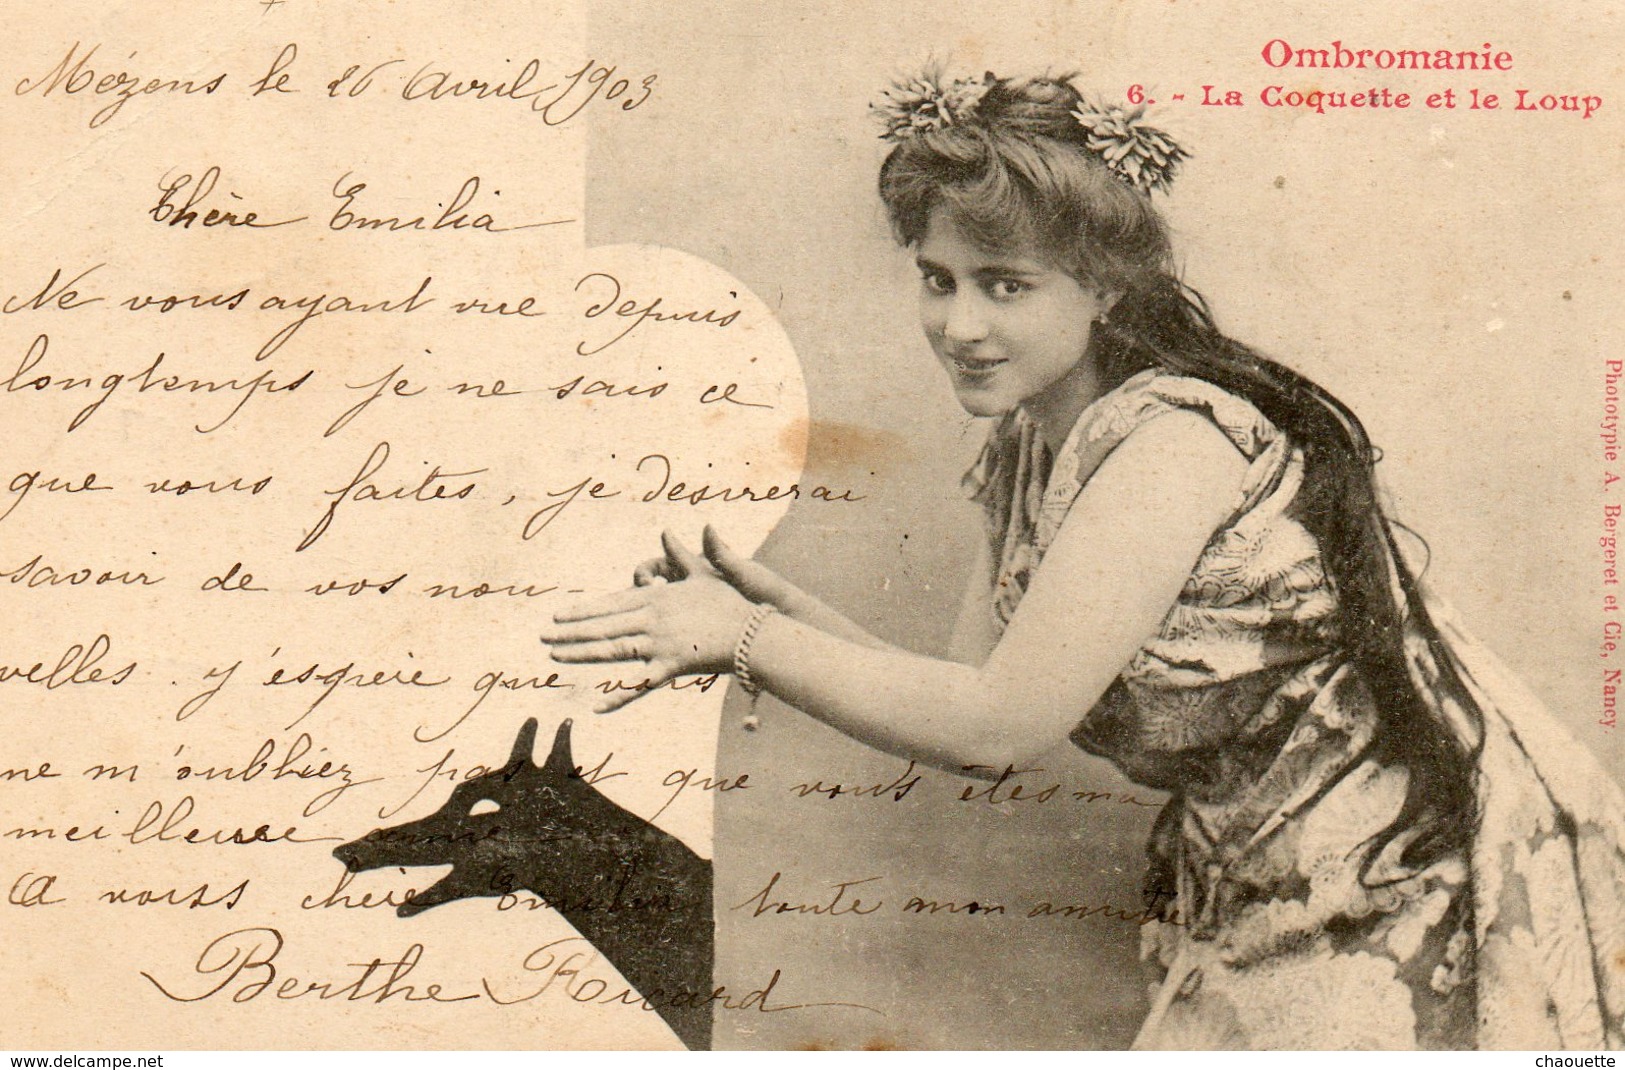 Mézens le 26 Avril 1903
Ombromanie
6. - La Coquette et le Loup
Chère Emilia
Ne vous ayant vue depuis
longtemps je ne sais cé
que vous faites, je désirerai
savoir de vos nou-
velles. y'espère que vous
ne m'oubliez pas et que vous êtes ma
meilleuse amie
A vous chère Emilia toute mon amitié
Berthe Ricard
Phototypie A. Bergeret et Cie, Nancy
www.delcampe.net
chaouette